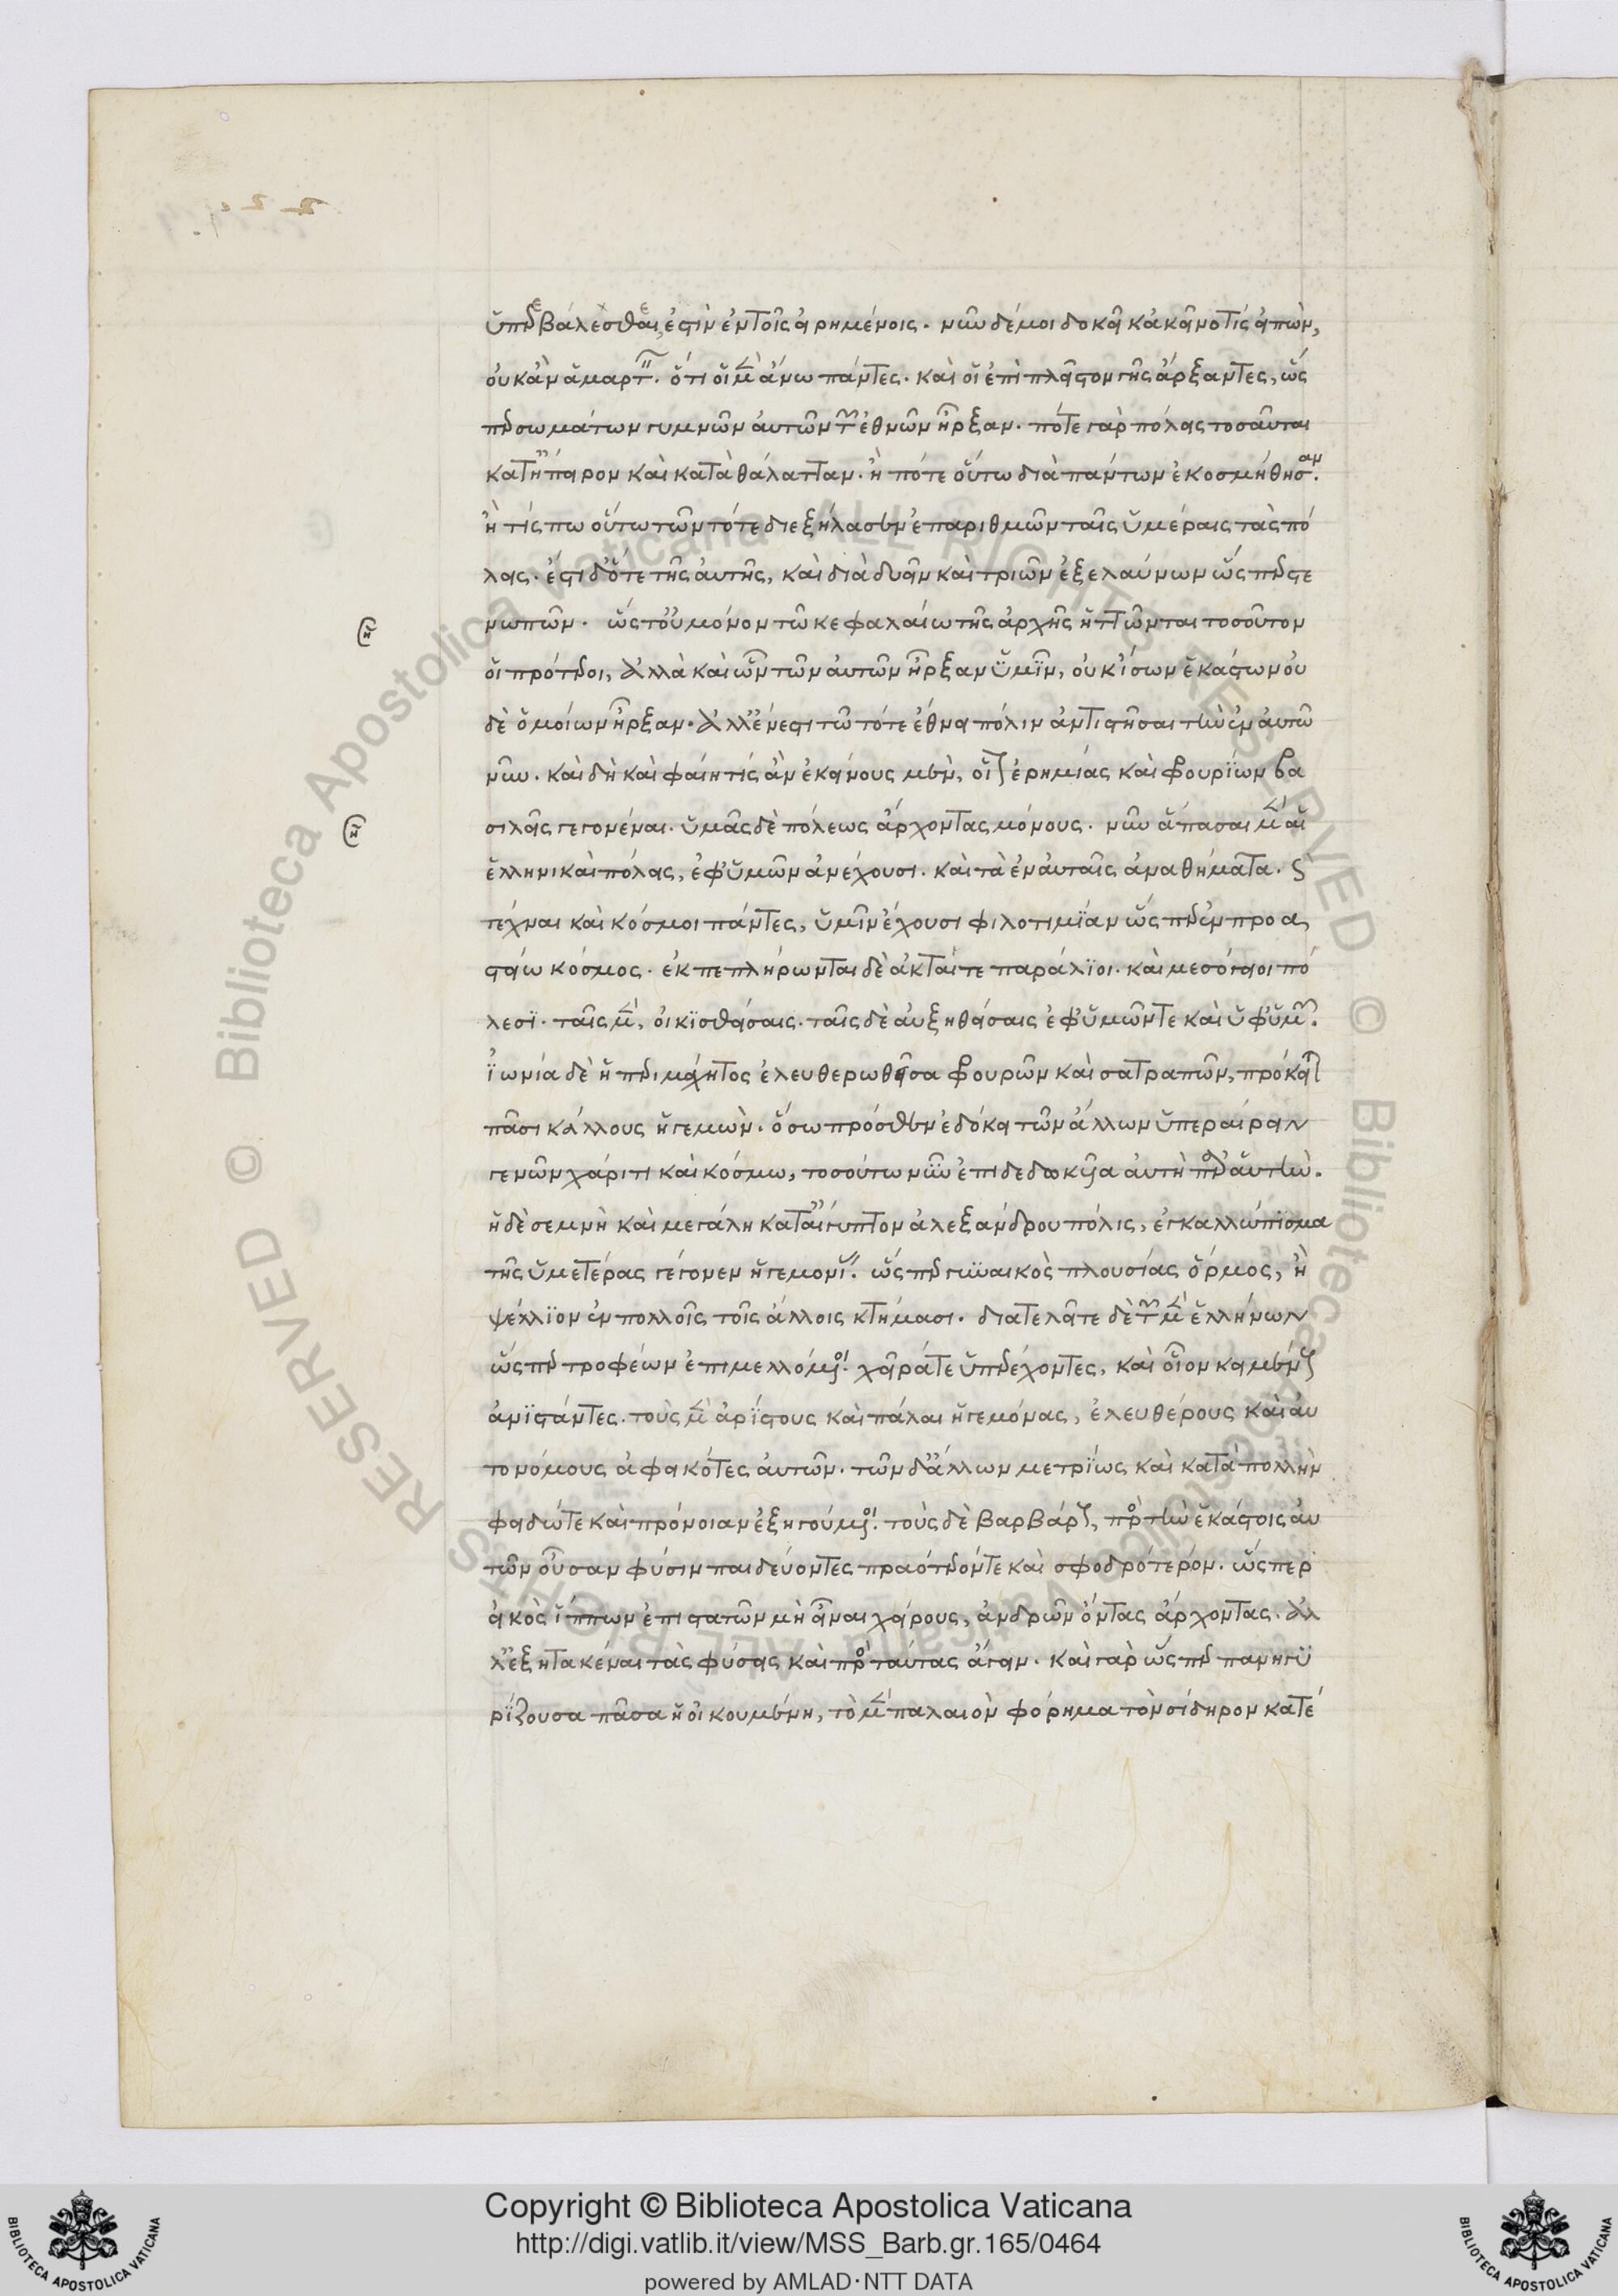 ὑπερβαλέσθαι, ἐστὶν ἐν τοῖς εἰρημένοις. νῦν δέ μοι δοκεῖ κἀκεῖνό τις εἰπὼν,
οὐκ ἂν ἁμαρτ. ὅτι οἱ μὲν ἄνω πάντες. καὶ οἱ ἐπὶ πλεῖστον γῆς ἄρξαντες, ὥς
περ σωμάτων γυμνῶν αὐτῶν τῶν ἐθνῶν ἦρξαν. πότε γὰρ πόλεις τοσαῦται
κατ' ἤπειρον καὶ κατὰ θάλατταν. ἢ πότε οὕτω διὰ πάντων ἐκοσμήθησαν.
ἢ τίς πω οὕτω τῶν τότε διεξήλασεν ἐπαριθμῶν ταῖς ἡμέραις τὰς πό
λεις. ἔστι δ' ὅτε τῆς αὐτῆς, καὶ διὰ δυεῖν καὶ τριῶν ἐξελαύνων ὥσπερ στε
νωπῶν. ὥστ' οὐ μόνον τῷ κεφαλαίῳ τῆς ἀρχῆς ἡττῶνται τοσοῦτον
οἱ πρότεροι, ἀλλὰ καὶ ὧν τῶν αὐτῶν ἦρξαν ὑμῖν, οὐκ ἴσων ἑκάστων οὐ
δὲ ὁμοίων ἦρξαν. ἀλλ' ἔνεστι τῷ τότε ἔθνει πόλιν ἀντιστῆσαι τὴν ἐν αὐτῷ
νῦν. καὶ δὴ καὶ φαίη τίς ἂν ἐκείνους μὲν, οἷον ἐρημίας καὶ φρουρίων βα
σιλεῖς γεγονέναι. ὑμᾶς δὲ πόλεως ἄρχοντας μόνους. νῦν ἅπασαι μὲν αἱ
ἑλληνικαὶ πόλεις, ἐφ' ὑμῶν ἀνέχουσι. καὶ τὰ ἐν αὐταῖς ἀναθήματα. καὶ
τέχναι καὶ κόσμοι πάντες, ὑμῖν ἔχουσι φιλοτιμίαν ὥσπερ ἐν προα
στείῳ κόσμος. ἐκπεπλήρωνται δὲ ἀκταί τε παράλιοι. καὶ μεσόγειοι πό
λεσι. ταῖς μὲν, οἰκισθείσαις. ταῖς δὲ αὐξηθείσαις ἐφ' ὑμῶν τε καὶ ὑφ' ὑμῶν.
ἰωνία δὲ ἡ περιμάχητος ἐλευθερωθεῖσα φρουρῶν καὶ σατραπῶν, πρόκειται
πᾶσι κάλλους ἡγεμὼν. ὅσῳ πρόσθεν ἐδόκει τῶν ἄλλων ὑπεραίρειν
γενῶν χάριτι καὶ κόσμῳ, τοσούτῳ νῦν ἐπιδεδωκυῖα αὐτὴ παρ' αὑτὴν.
ἡ δὲ σεμνὴ καὶ μεγάλη κατ' αἴγυπτον ἀλεξάνδρου πόλις, ἐγκαλλώπισμα
τῆς ὑμετέρας γέγονεν ἡγεμονίας. ὥσπερ γυναικὸς πλουσίας ὅρμος, ἢ
ψέλλιον ἐν πολλοῖς τοῖς ἄλλοις κτήμασι. διατελεῖτε δὲ τῶν μὲν ἑλλήνων
ὥσπερ τροφέων ἐπιμελλόμενοι. χεῖρά τε ὑπερέχοντες, καὶ οἷον κειμένους
ἀνιστάντες. τοὺς μὲν ἀρίστους καὶ πάλαι ἡγεμόνας, ἐλευθέρους καὶ αὐ
τονόμους ἀφεικότες αὐτῶν. τῶν δ' ἄλλων μετρίως καὶ κατὰ πολλὴν
φειδώ τε καὶ πρόνοιαν ἐξηγούμενοι. τοὺς δὲ βαρβάρους, πρὸς τὴν ἑκάστοις αὐ
τῶν οὖσαν φύσιν παιδεύοντες πραότερόν τε καὶ σφοδρότερον. ὥσπερ
εἰκὸς ἵππων ἐπιστατῶν μὴ εἶναι χείρους, ἀνδρῶν ὄντας ἄρχοντας. ἀλ
λ' ἐξητακέναι τὰς φύσεις καὶ πρὸς ταύτας ἄγειν. καὶ γὰρ ὥσπερ πανηγυ
ρίζουσα πᾶσα ἡ οἰκουμένη, τὸ μὲν παλαιὸν φόρημα τὸν σίδηρον κατέ
Copyright © Biblioteca Apostolica Vaticana
http://digi.vatlib.it/view/MSS_Barb.gr.165/0464
powered by AMLAD·NTT DATA